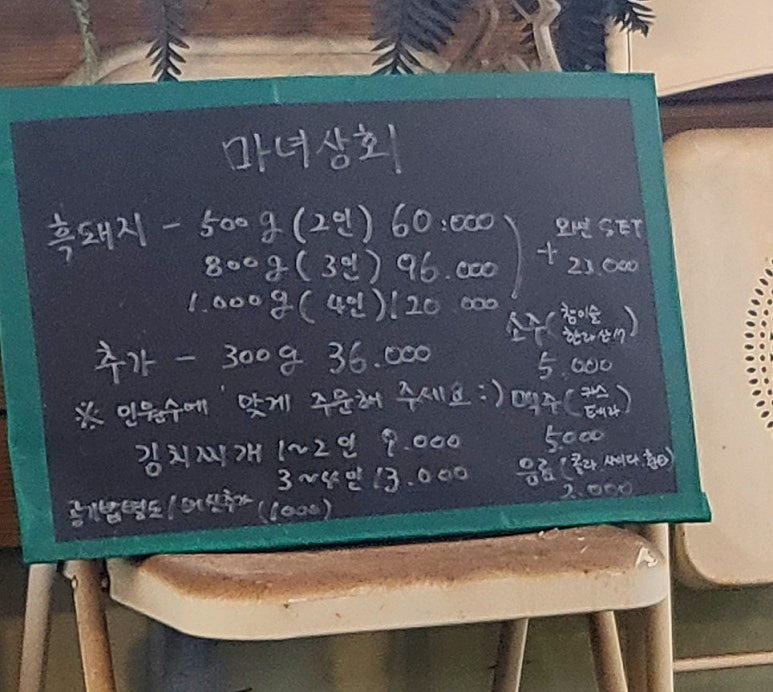 마녀상회
흑돼지 - 500g (2인) 60.000
800g (3인) 96.000
1.000g (4인) 120.000
+ 와인 SET
23.000
추가 - 300g 36.000
※ 인원수에 맞게 주문해 주세요 :)
김치찌개 1~2인 9.000
3~4인 13.000
공기밥별도 / 추가 (1000)
소주 (참이슬
한라산)
5.000
맥주 (카스
테라)
5000
음료 (콜라, 사이다, 환타)
2.000